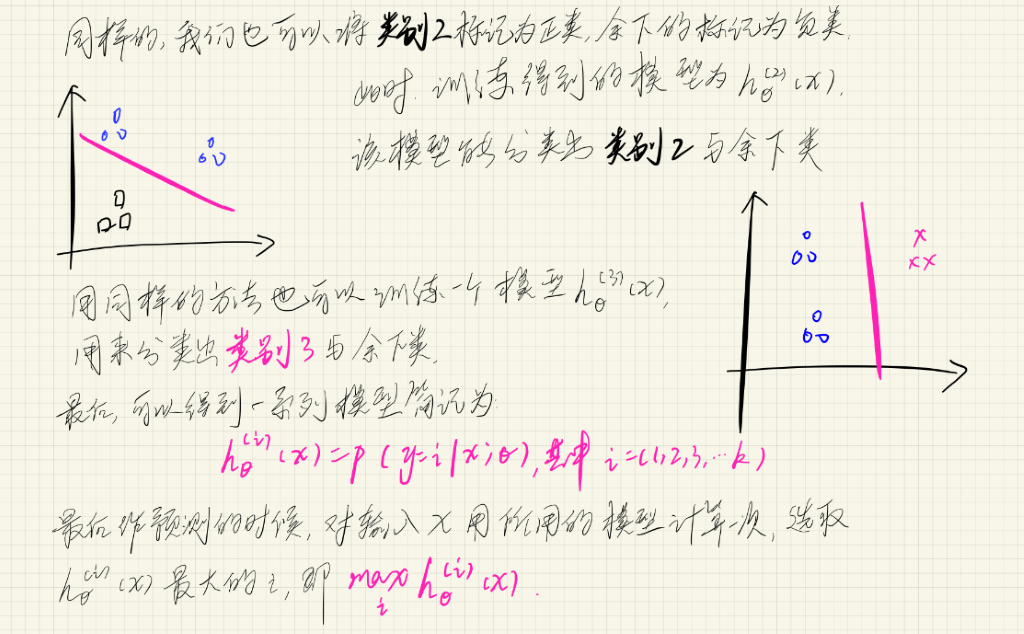 同样的,我们也可以将类别2标记为正类,余下的标记为负类.
此时.训练得到的模型为 h_θ^(2)(x).
该模型能分类出 类别2与余下类
用同样的方法也可以训练一个模型 h_θ^(3)(x),
用来分类出类别3与余下类.
最后,可以得到一系列模型简记为:
h_θ^(i)(x)=p(y=i|x;θ),其中 i=(1,2,3,…k)
最后作预测的时候,对输入x用所用的模型计算一次,选取
h_θ^(i)(x)最大的i,即 max_i h_θ^(i)(x).